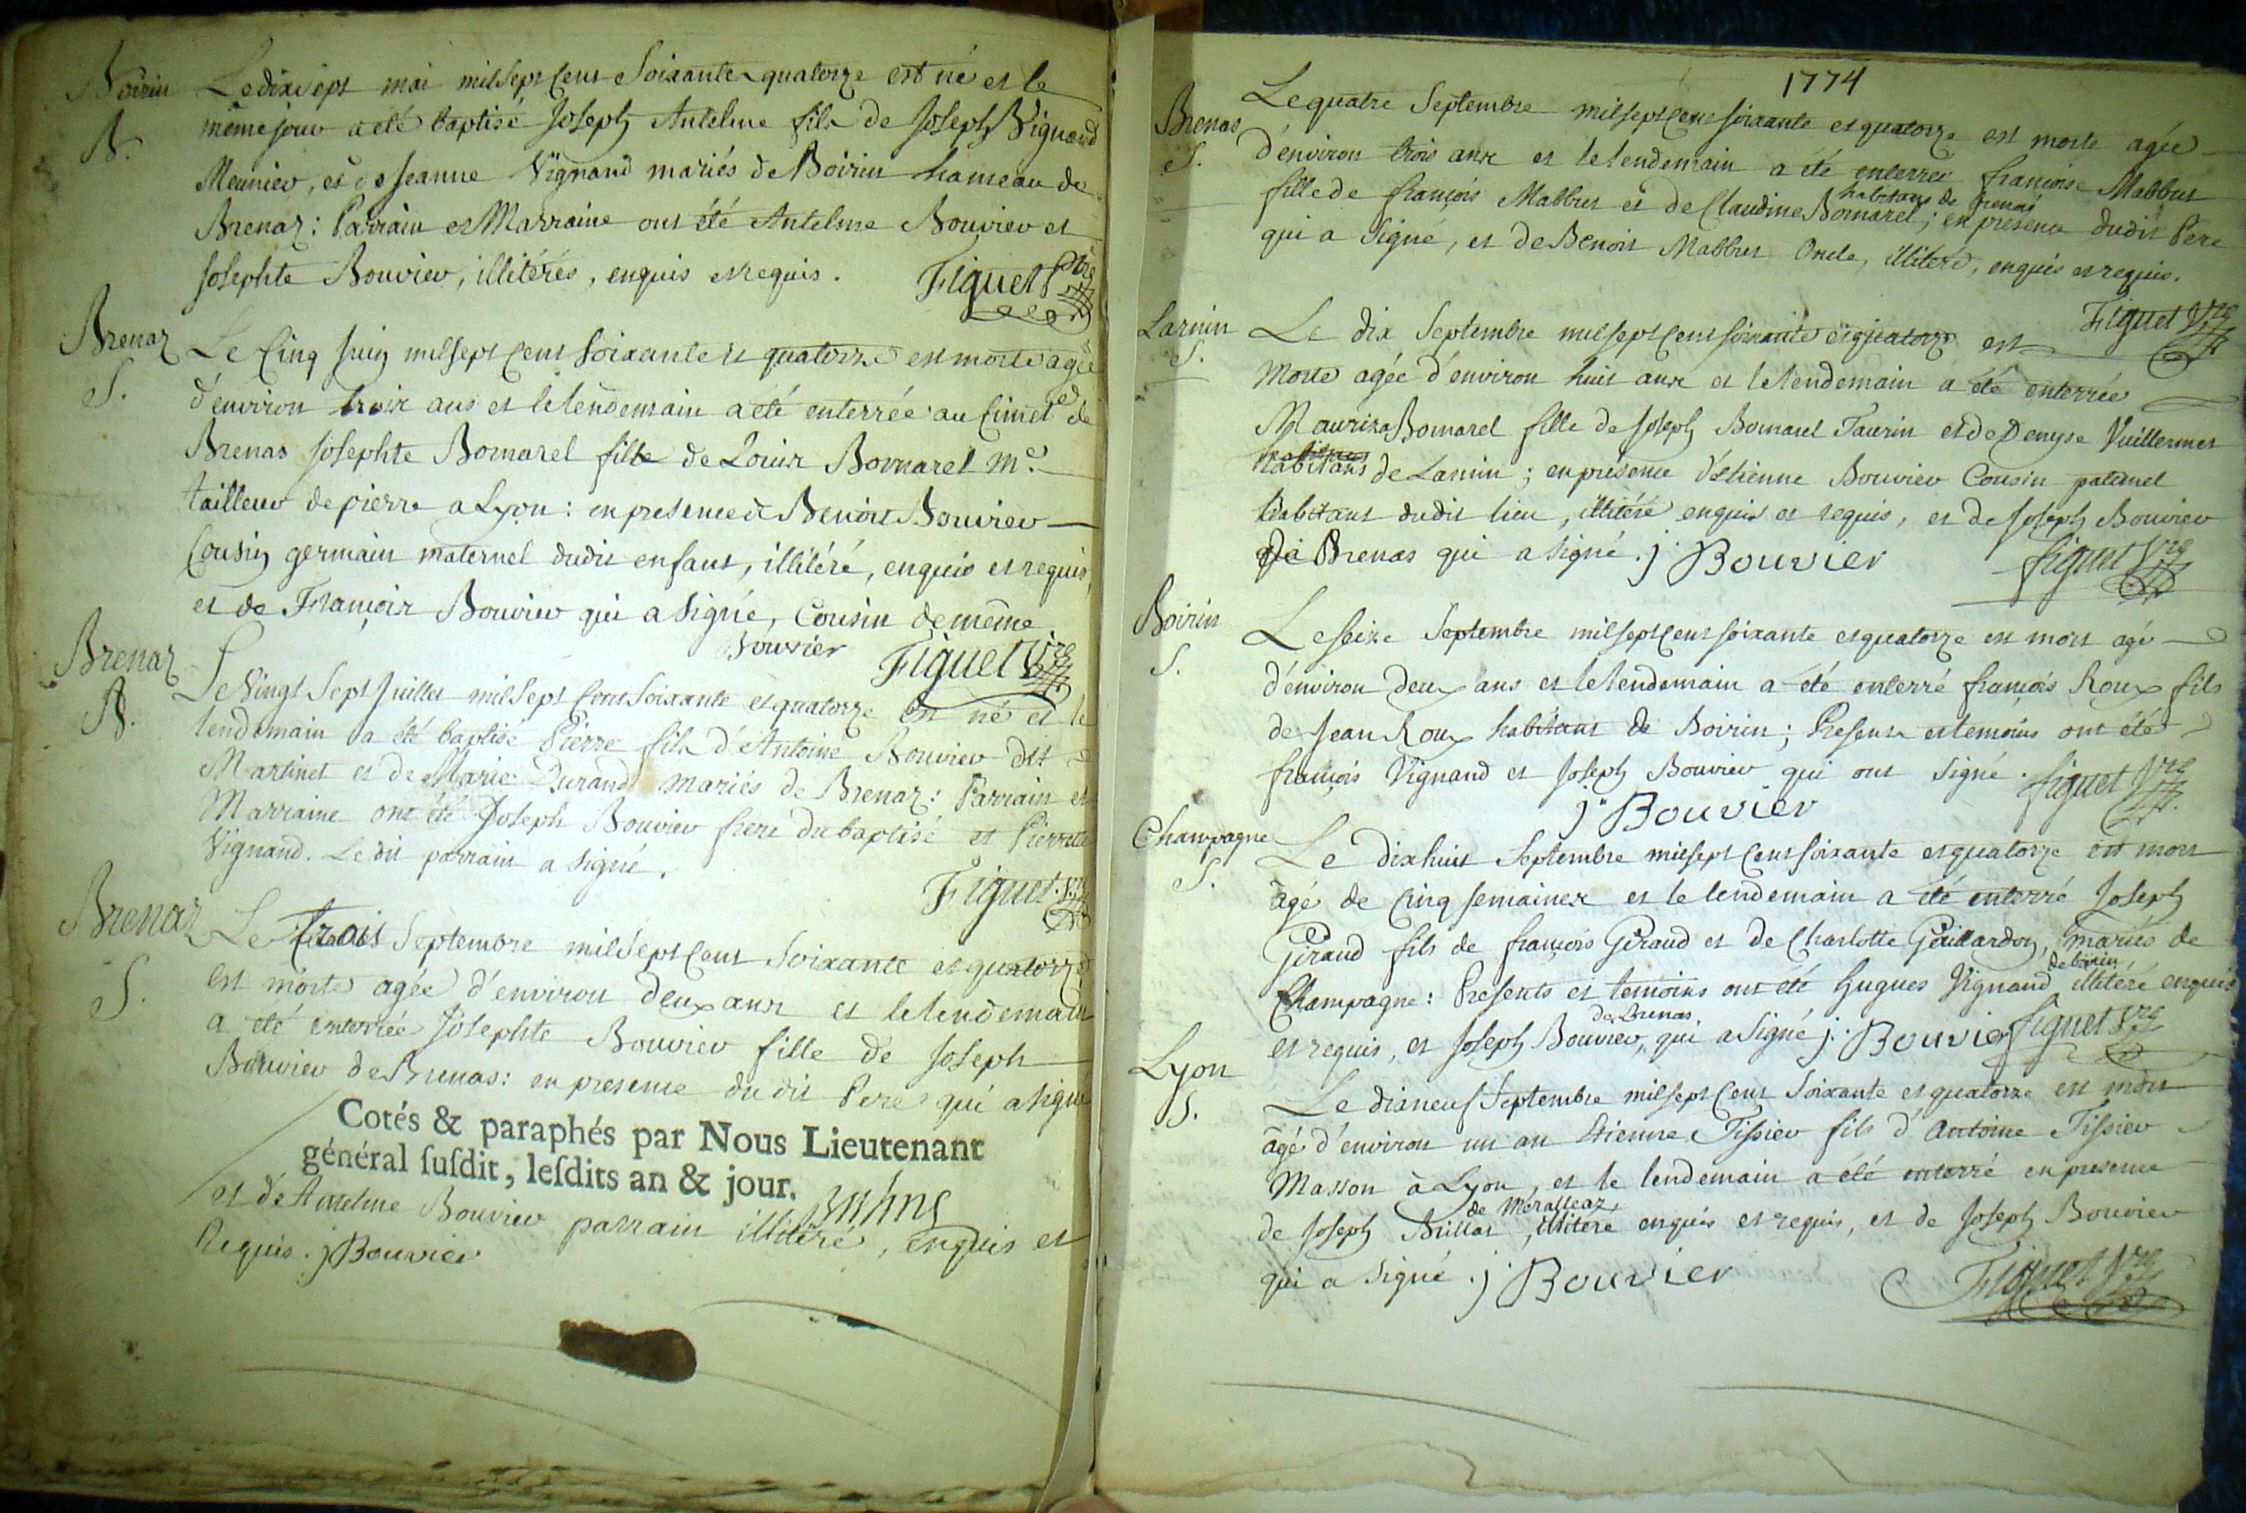 Boirin
B.
Le dixsept mai milsept cent Soixante quatorze est né et le
même jour a été baptisé Joseph Antelme fils de Joseph Vignand
Meunier, et de Jeanne Vignand mariés de Boirin hameau de
Brenaz: Parrain et Marraine ont été Antelme Bouvier et
Josephte Bouvier, illitérés, enquis et requis.
Figuet ptre
Brenaz
S.
Le Cinq Juin milsept cent Soixante et quatorze est morte agée
d'environ trois ans et le lendemain a été enterrée au Cimet.e de
Brenas Josephte Bornarel fille de Louis Bornarel M.e
tailleur de pierre a Lyon: en presence de Benoit Bouvier
Cousin germain maternel dudit enfant, illitéré, enquis et requis,
et de François Bouvier qui a signé, Cousin de même
Bouvier Figuet Vre
Brenaz
B.
Le Vingt Sept Juillet milsept cent soixante et quatorze est né et le
lendemain a été baptisé Pierre fils d'Antoine Bouvier dit
Martinet et de Marie Durand mariés de Brenaz: Parrain et
Marraine ont été Joseph Bouvier frere du baptisé et Pierrette
Vignand. Le dit parrain a signé.
Figuet Vre
Brenaz
S.
Le trois Septembre milsept cent Soixante et quatorze
est morte agée d'environ deux ans et le lendemain
a été enterrée Josephte Bouvier fille de Joseph
Bouvier de Brenas: en presence du dit Pere qui a signé
Cotés & paraphés par Nous Lieutenant
général susdit, lesdits an & jour.
et d'Antelme Bouvier parrain illitéré, enquis et
Requis. j Bouvier
1774
Brenas
S.
Le quatre Septembre milsept cent soixante et quatorze est morte agée
d'environ trois ans et le lendemain a été enterrée françoise Mabbut
habitans de Brenas
fille de françois Mabbut et de Claudine Bornarel; en presence dudit Pere
qui a signé, et de Benoit Mabbut Oncle, illitéré, enquis et requis.
Figuet Vre
Larnin
S.
Le dix Septembre milsept cent soixante et quatorze est
Morte agée d'environ huit ans et le lendemain a été enterrée
Mauriza Bornarel fille de Joseph Bornarel Taurin et de Denyse Vuillermet
habitans de Larnin; en présence d'Etienne Bouvier Cousin paternel
habitant dudit lieu, illitéré enquis et requis, et de Joseph Bouvier
de Brenas qui a signé. j Bouvier
Figuet Vre
Boirin
S.
Le seize Septembre milsept cent soixante et quatorze est mort agé
d'environ deux ans et le lendemain a été enterré françois Roux fils
de Jean Roux habitant de Boirin; Presens et temoins ont été
françois Vignand et Joseph Bouvier qui ont signé. Figuet Vre
j Bouvier
Champagne
S.
Le dixhuit Septembre milsept cent soixante et quatorze est mort
âgé de Cinq semaines et le lendemain a été enterré Joseph
Giraud fils de françois Giraud et de Charlotte Guillardon, mariés de
de boirin
Champagne: Presents et temoins ont été Hugues Vignand illitéré enquis
de Brenas
et requis, et Joseph Bouvier, qui a signé j. Bouvier Figuet Vre
Lyon
S.
Le dixneuf Septembre milsept cent Soixante et quatorze est mort
âgé d'environ un an Etienne Tissier fils d'Antoine Tissier
Masson à Lyon, et le lendemain a été enterré en presence
de Méralleaz
de Joseph Brillat, illitéré enquis et requis, et de Joseph Bouvier
qui a signé. j. Bouvier
Figuet Vre